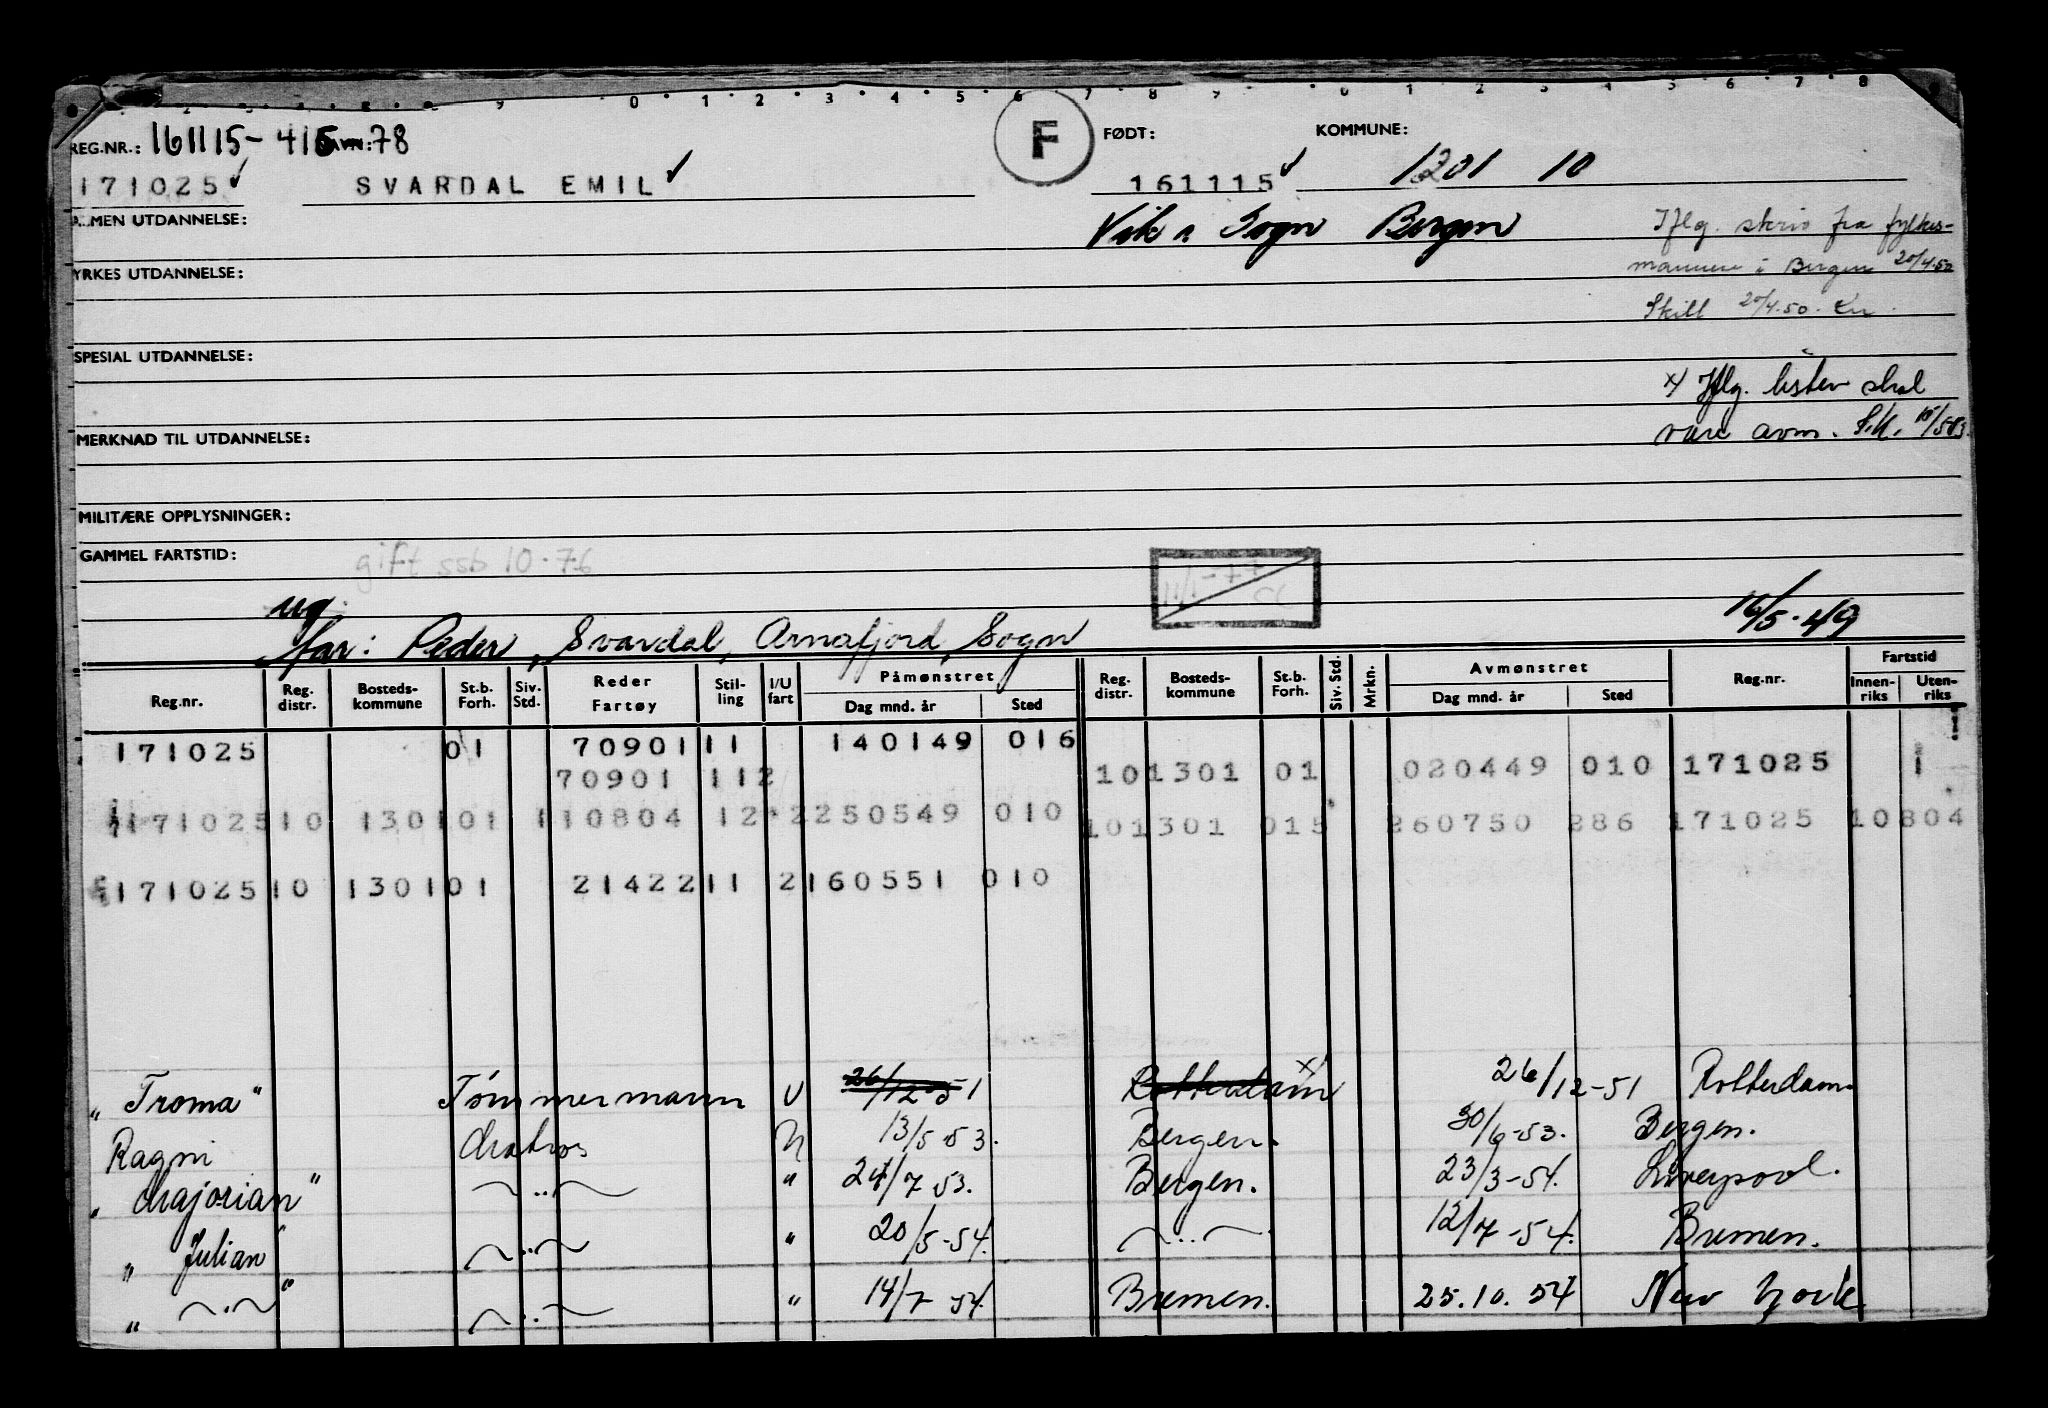 2 3 4 5 6 7 8 9 0 1 2 3 4 5 6 7 8 9 0 1 2 3 4 5 6 7 8
REG.NR.: 161115-415 78
F
FØDT:
KOMMUNE:
171025 ✓ SVARDAL EMIL ✓ 161115 ✓ 1201 10
MEN UTDANNELSE:
Vik i Sogn Bergen
Iflg. skriv fra fylkes-
YRKES UTDANNELSE:
mannen i Bergen 20/4.50
Skill 20/4.50.
SPESIAL UTDANNELSE:
x) Iflg. listen skal
MERKNAD TIL UTDANNELSE:
være avm. S.K.
MILITÆRE OPPLYSNINGER:
GAMMEL FARTSTID:
gift ssb 10.76
11/1-77
ug
far: Peder, Svardal, Arnafjord, Sogn
16/5-49
Reg.nr. Reg. distr. Bosteds-kommune St.b. Forh. Siv. Std. Reder Fartøy Stil-ling I/U fart Påmønstret Dag mnd. år Sted Reg. distr. Bosteds-kommune St.b. Forh. Siv. Std. Mrkn. Avmønstret Dag mnd. år Sted Reg.nr. Fartstid Innen-riks Uten-riks
171025 01 70901 11 140149 016
70901 112 10 1301 01 020449 010 171025 1
171025 10 1301 01 1 10804 12 2 250549 010 10 1301 015 260750 286 171025 10804
171025 10 1301 01 21422 11 2 160551 010
"Troma" Tømmermann U 26/12-51 Rotterdam x) 26/12-51 Rotterdam
Ragni Matros U 13/5-53. Bergen. 30/6-53. Bergen.
"Majorian" —..— " 24/7 53. Bergen. 23/3-54. Liverpool.
"Julian" —..— " 20/5-54. —..— 12/7-54. Bremen.
"—..—" —..— " 14/7 54. Bremen. 25.10.54 New York